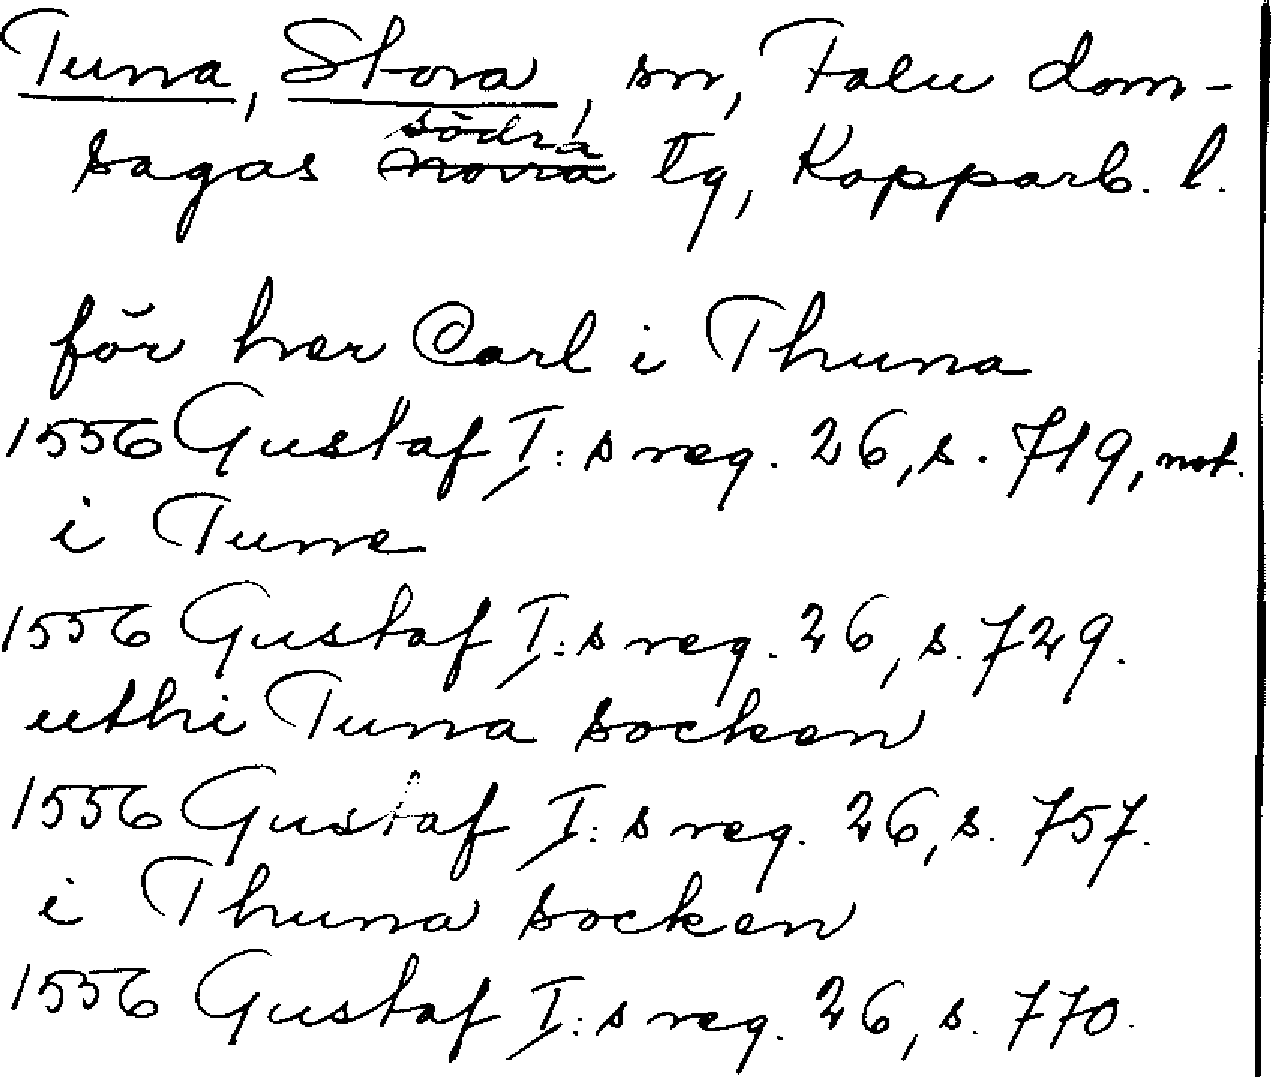 Tuna, Stora, sn, Falu dom-
södra
sagas norra tg, Kopparb. l.
för her Carl i Thuna
1556 Gustaf I:s reg. 26, s. 719, not.
i Tune
1556 Gustaf I:s reg. 26, s. 729.
uthi Tuna socken
1556 Gustaf I:s reg. 26, s. 757.
i Thuna socken
1556 Gustaf I:s reg. 26, s. 770.